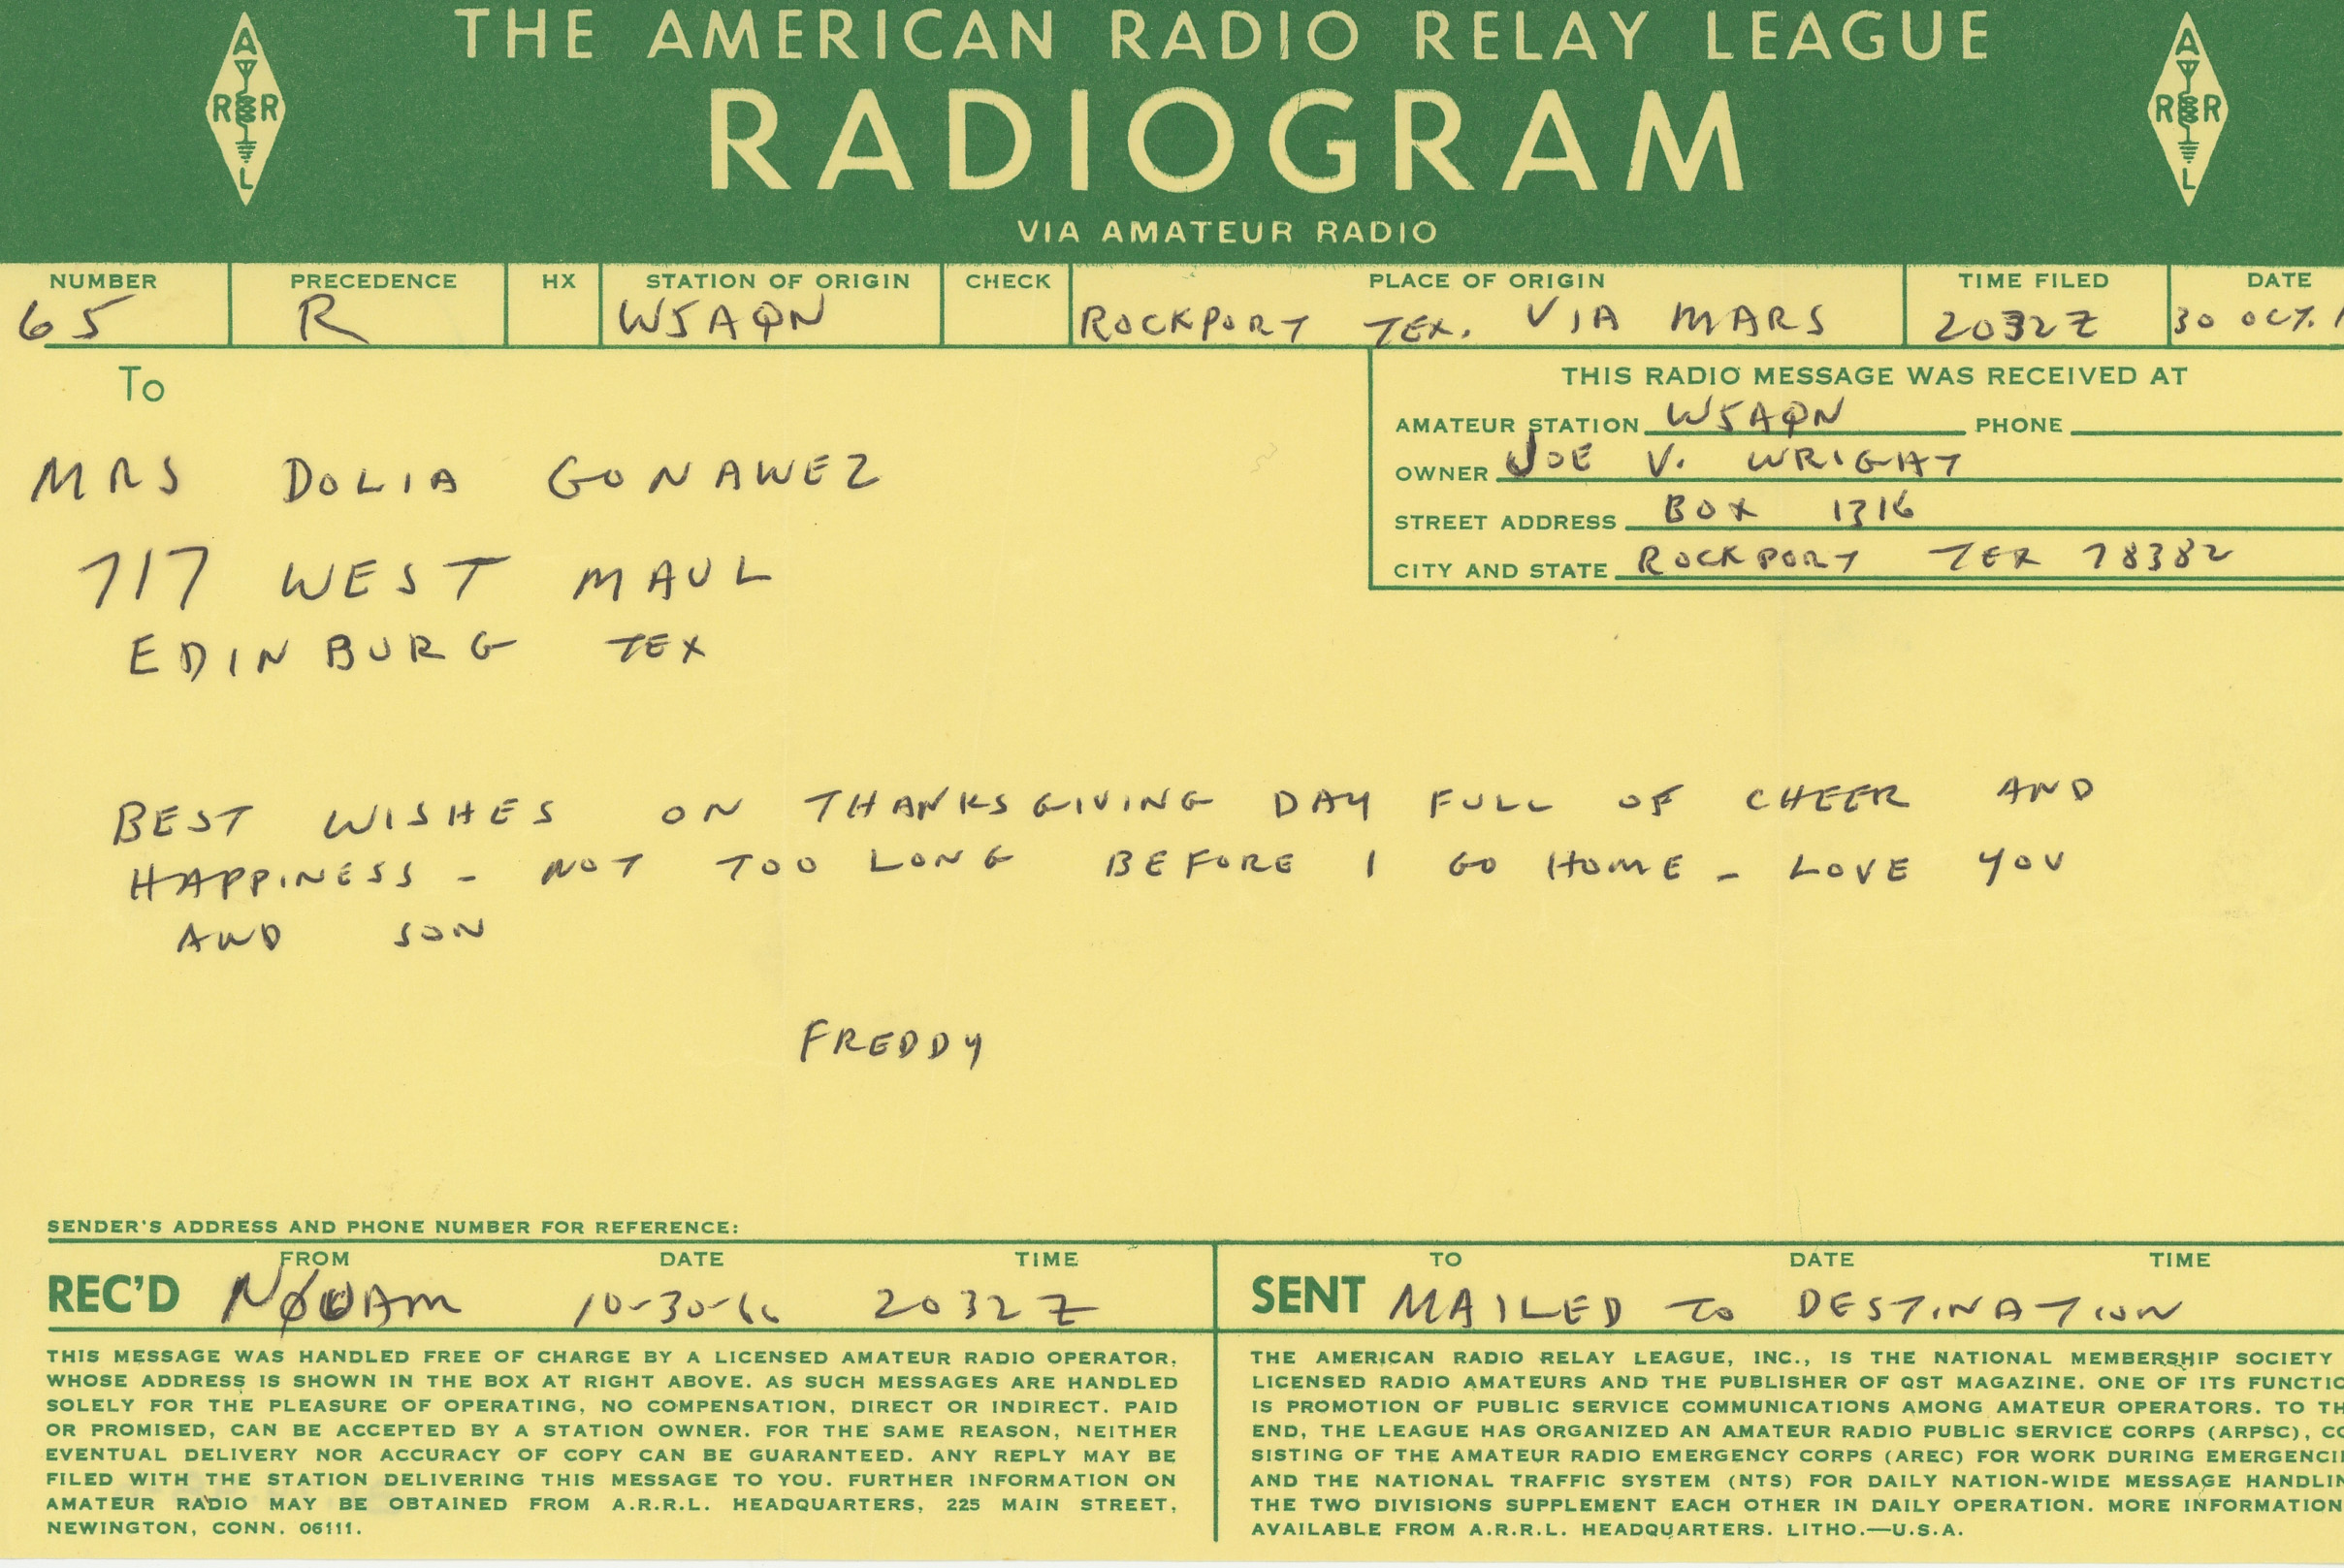 THE AMERICAN RADIO RELAY LEAGUE
RADIOGRAM
VIA AMATEUR RADIO
A R R L
A R R L
NUMBER PRECEDENCE HX STATION OF ORIGIN CHECK PLACE OF ORIGIN TIME FILED DATE
65 R W5AQN ROCKPORT TEX. VIA MARS 2032Z 30 OCT.
To
THIS RADIO MESSAGE WAS RECEIVED AT
AMATEUR STATION W5AQN PHONE
OWNER JOE V. WRIGHT
STREET ADDRESS BOX 1316
CITY AND STATE ROCKPORT TEX 78382
MRS DOLIA GONAWEZ
717 WEST MAUL
EDINBURG TEX
BEST WISHES ON THANKSGIVING DAY FULL OF CHEER AND
HAPPINESS - NOT TOO LONG BEFORE I GO HOME - LOVE YOU
AND SON
FREDDY
SENDER'S ADDRESS AND PHONE NUMBER FOR REFERENCE:
FROM DATE TIME
REC'D 2032Z
TO DATE TIME
SENT MAILED TO DESTINATION
THIS MESSAGE WAS HANDLED FREE OF CHARGE BY A LICENSED AMATEUR RADIO OPERATOR,
WHOSE ADDRESS IS SHOWN IN THE BOX AT RIGHT ABOVE. AS SUCH MESSAGES ARE HANDLED
SOLELY FOR THE PLEASURE OF OPERATING, NO COMPENSATION, DIRECT OR INDIRECT. PAID
OR PROMISED, CAN BE ACCEPTED BY A STATION OWNER. FOR THE SAME REASON, NEITHER
EVENTUAL DELIVERY NOR ACCURACY OF COPY CAN BE GUARANTEED. ANY REPLY MAY BE
FILED WITH THE STATION DELIVERING THIS MESSAGE TO YOU. FURTHER INFORMATION ON
AMATEUR RADIO MAY BE OBTAINED FROM A.R.R.L. HEADQUARTERS, 225 MAIN STREET,
NEWINGTON, CONN. 06111.
THE AMERICAN RADIO RELAY LEAGUE, INC., IS THE NATIONAL MEMBERSHIP SOCIETY
LICENSED RADIO AMATEURS AND THE PUBLISHER OF QST MAGAZINE. ONE OF ITS FUNCTIO
IS PROMOTION OF PUBLIC SERVICE COMMUNICATIONS AMONG AMATEUR OPERATORS. TO TH
END, THE LEAGUE HAS ORGANIZED AN AMATEUR RADIO PUBLIC SERVICE CORPS (ARPSC), CO
SISTING OF THE AMATEUR RADIO EMERGENCY CORPS (AREC) FOR WORK DURING EMERGENCI
AND THE NATIONAL TRAFFIC SYSTEM (NTS) FOR DAILY NATION-WIDE MESSAGE HANDLIN
THE TWO DIVISIONS SUPPLEMENT EACH OTHER IN DAILY OPERATION. MORE INFORMATION
AVAILABLE FROM A.R.R.L. HEADQUARTERS. LITHO.—U.S.A.